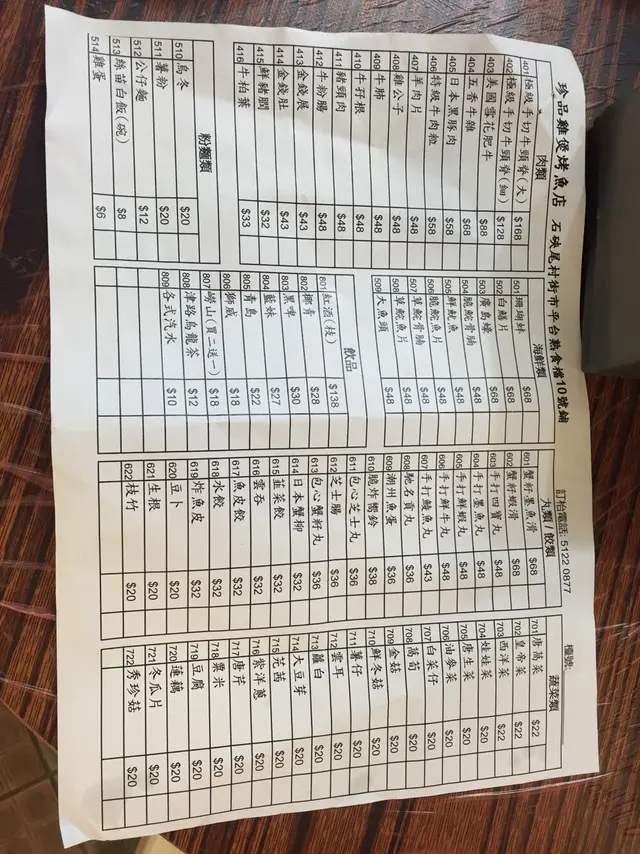 珍品雞煲烤魚店 石硤尾村街市平台熟食檔10號鋪 訂枱電話: 5122 0877 檯號:
肉類
401 極級手切牛頸脊(大) $168
402 極級手切牛頸脊(細) $128
403 美國雪花肥牛 $88
404 五香牛雜 $68
405 日本黑豚肉 $58
406 特級牛肉粒 $58
407 羊肉片 $48
408 雞公子 $48
409 牛肺 $48
410 牛孖根 $48
411 豬頸肉 $48
412 牛粉腸 $48
413 金錢展 $43
414 金錢肚 $43
415 鮮豬膶 $32
416 牛柏葉 $33
粉麵類
510 烏冬 $20
511 薯粉 $20
512 公仔麵 $12
513 絲苗白飯(碗) $8
514 雞蛋 $6
海鮮類
501 珊瑚蚌 $68
502 白鱔片 $68
503 廣島蠔 $68
504 脆鯇骨腩 $48
505 鮮魷魚 $48
506 脆鯇魚片 $48
507 草鯇骨腩 $48
508 草鯇魚片 $48
509 大魚頭 $48
飲品
801 紅酒(枝) $138
802 椰青 $28
803 黑啤 $30
804 藍妹 $27
805 青島 $22
806 獅威 $18
807 嶗山(買二送一) $18
808 津路烏龍茶 $12
809 各式汽水 $10
丸類/餃類
601 蟹籽墨魚滑 $68
602 蟹籽蝦滑 $68
603 手打四寶丸 $48
604 手打墨魚丸 $48
605 手打鮮蝦丸 $48
606 手打鮮牛丸 $48
607 手打鯪魚丸 $43
608 馳名貢丸 $36
609 潮州魚蛋 $36
610 脆炸響鈴 $38
611 包心芝士丸 $36
612 芝士腸 $36
613 包心蟹籽丸 $36
614 日本蟹柳 $32
615 韮菜餃 $32
616 雲吞 $32
617 魚皮餃 $32
618 水餃 $32
619 炸魚皮 $32
620 豆卜 $20
621 生根 $20
622 枝竹 $20
蔬菜類
701 唐萵菜 $22
702 皇帝菜 $22
703 西洋菜 $22
704 娃娃菜 $20
705 唐生菜 $20
706 油麥菜 $20
707 白菜仔 $20
708 萵筍 $20
709 金菇 $20
710 鮮冬菇 $20
711 薯仔 $20
712 雲耳 $20
713 蘿白 $20
714 大豆芽 $20
715 芫茜 $20
716 紫洋蔥 $20
717 唐芹 $20
718 粟米 $20
719 豆腐 $20
720 蓮藕 $20
721 冬瓜片 $20
722 秀珍菇 $20